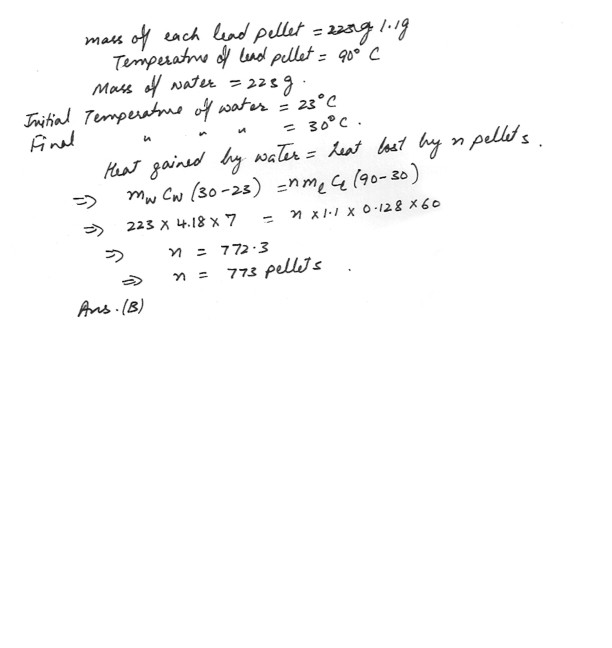 mass of each lead pellet = 1.1g
Temperature of lead pellet = 90° C
Mass of water = 223g.
Initial Temperature of water = 23°C
Final " " " = 30°C.
Heat gained by water = heat lost by n pellets.
⇒ mw Cw (30-23) = n mL CL (90-30)
⇒ 223 x 4.18 x 7 = n x 1.1 x 0.128 x 60
⇒ n = 772.3
⇒ n = 773 pellets.
Ans. (B)